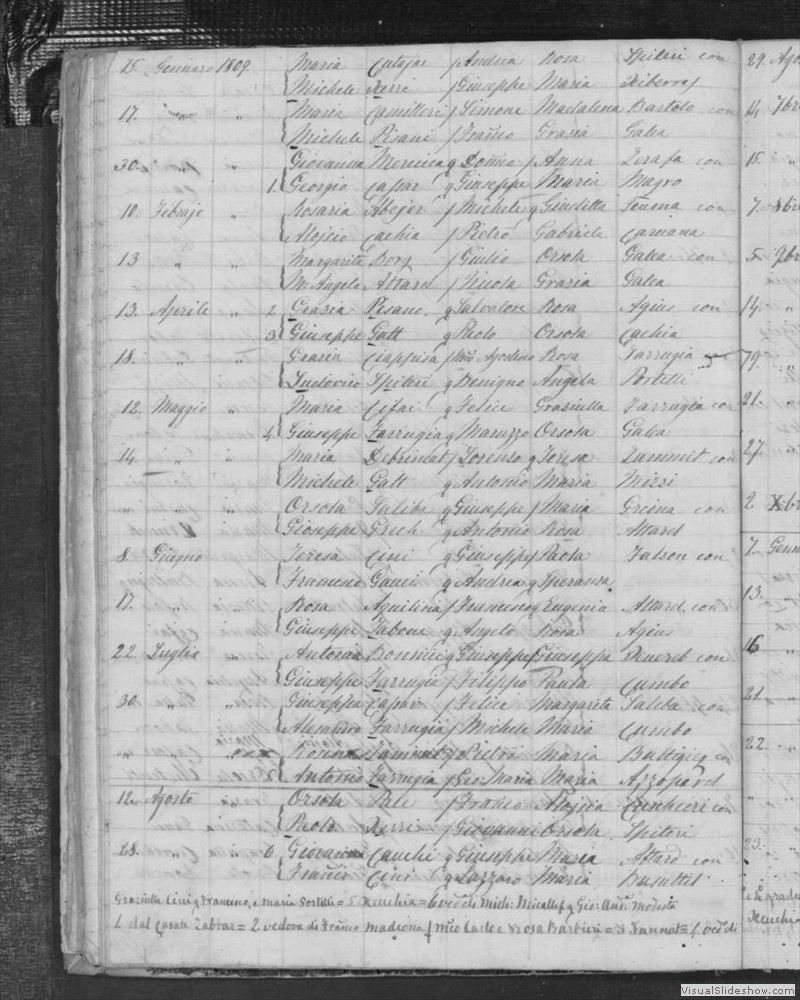 15. Gennaro 1809. Maria Cutajar f Andrea Rosa Spiteri con
Michele Xerri f Giuseppe Maria Xiberras
17. " " Maria Camilleri f Simone Madalena Bartolo con
Michele Pisani f Franco Grasia Galea
30. " " Giovanna Mercieca q Domco f Anna Zerafa con
1. Georgio Caspar q Giuseppe Maria Magro
10. Febrajo " Rosaria Abejer f Michele q Giuditta Teuma con
Alojsio Cachia f Pietro Gabriela Caruana
13 " " Margarita Borg f Giulio Orsola Galea con
M. Angelo Attard f Nicola Grazia Galea
13. Aprile " 2. Grasia Pisano. q Salvatore Rosa Agius con
3. Giuseppe Gatt q Paolo Orsola Cachia
18. " " Grasia Ciappisa Agostino Rosa Farrugia
Ludovico Spiteri q Benigno Angela Portelli
12. Maggio " Maria Cifai q Felice Grasiulla Farrugia con
4. Giuseppe Farrugia q Maruzzo Orsola Galea
14 " " Maria Debrincat f Lorenzo q Teresa Zammit con
Michele Gatt q Antonio Maria Mizzi
" " Orsola Saliba q Giuseppe f Maria Grima con
Gioseppe Grech q Antonio Rosa Attard
8. Giugno Teresa Cini q Giuseppe f Paola Falson con
Francesco Gauci q Andrea q Speranza
17. " " Rosa Aquilina f Francesco q Eugenia Attard con
Giuseppe Tabone q Angelo Rosa Agius
22. Luglio " Antonia Bonnici q Giuseppe f Giuseppa Xuereb con
Giuseppe Farrugia f Filippo Paula Cumbo
30. " " Giuseppa Caspar f Felice Margarita Saliba con
Alesandro Farrugia f Michele Maria Cumbo
" " Rosina Zammit f Pietro Maria Buttigieg con
5 Antonio Farrugia f Gio Maria Maria Azzopard
12. Agosto Orsola Pale f Franco Alojsia con
Paolo Xerri f Giovanni Orsola Spiteri
28. 6. Giovanna Cauchi q Giuseppe Maria Attard con
Franco Cini q Lazzaro Maria Busuttil
Graziulla Cini q Francesco, e Maria Portelli = 5 Xeuchia = 6 ved. di Mich: Micallef q Gio: And. Modesta
1. dal Casale Zabbar = 2 vedova di Franco Madiona f Mro Carlo e Rosa Barbieri = 3 Sannat = 4. ved. di
29. Ago
14. 7br
15. "
7. 8br
5. 9br
14. "
19. "
21. "
27.
2 Xbr
7. Genn
13.
16
21.
22.
23.
Xeuchia
VisualSlideshow.com